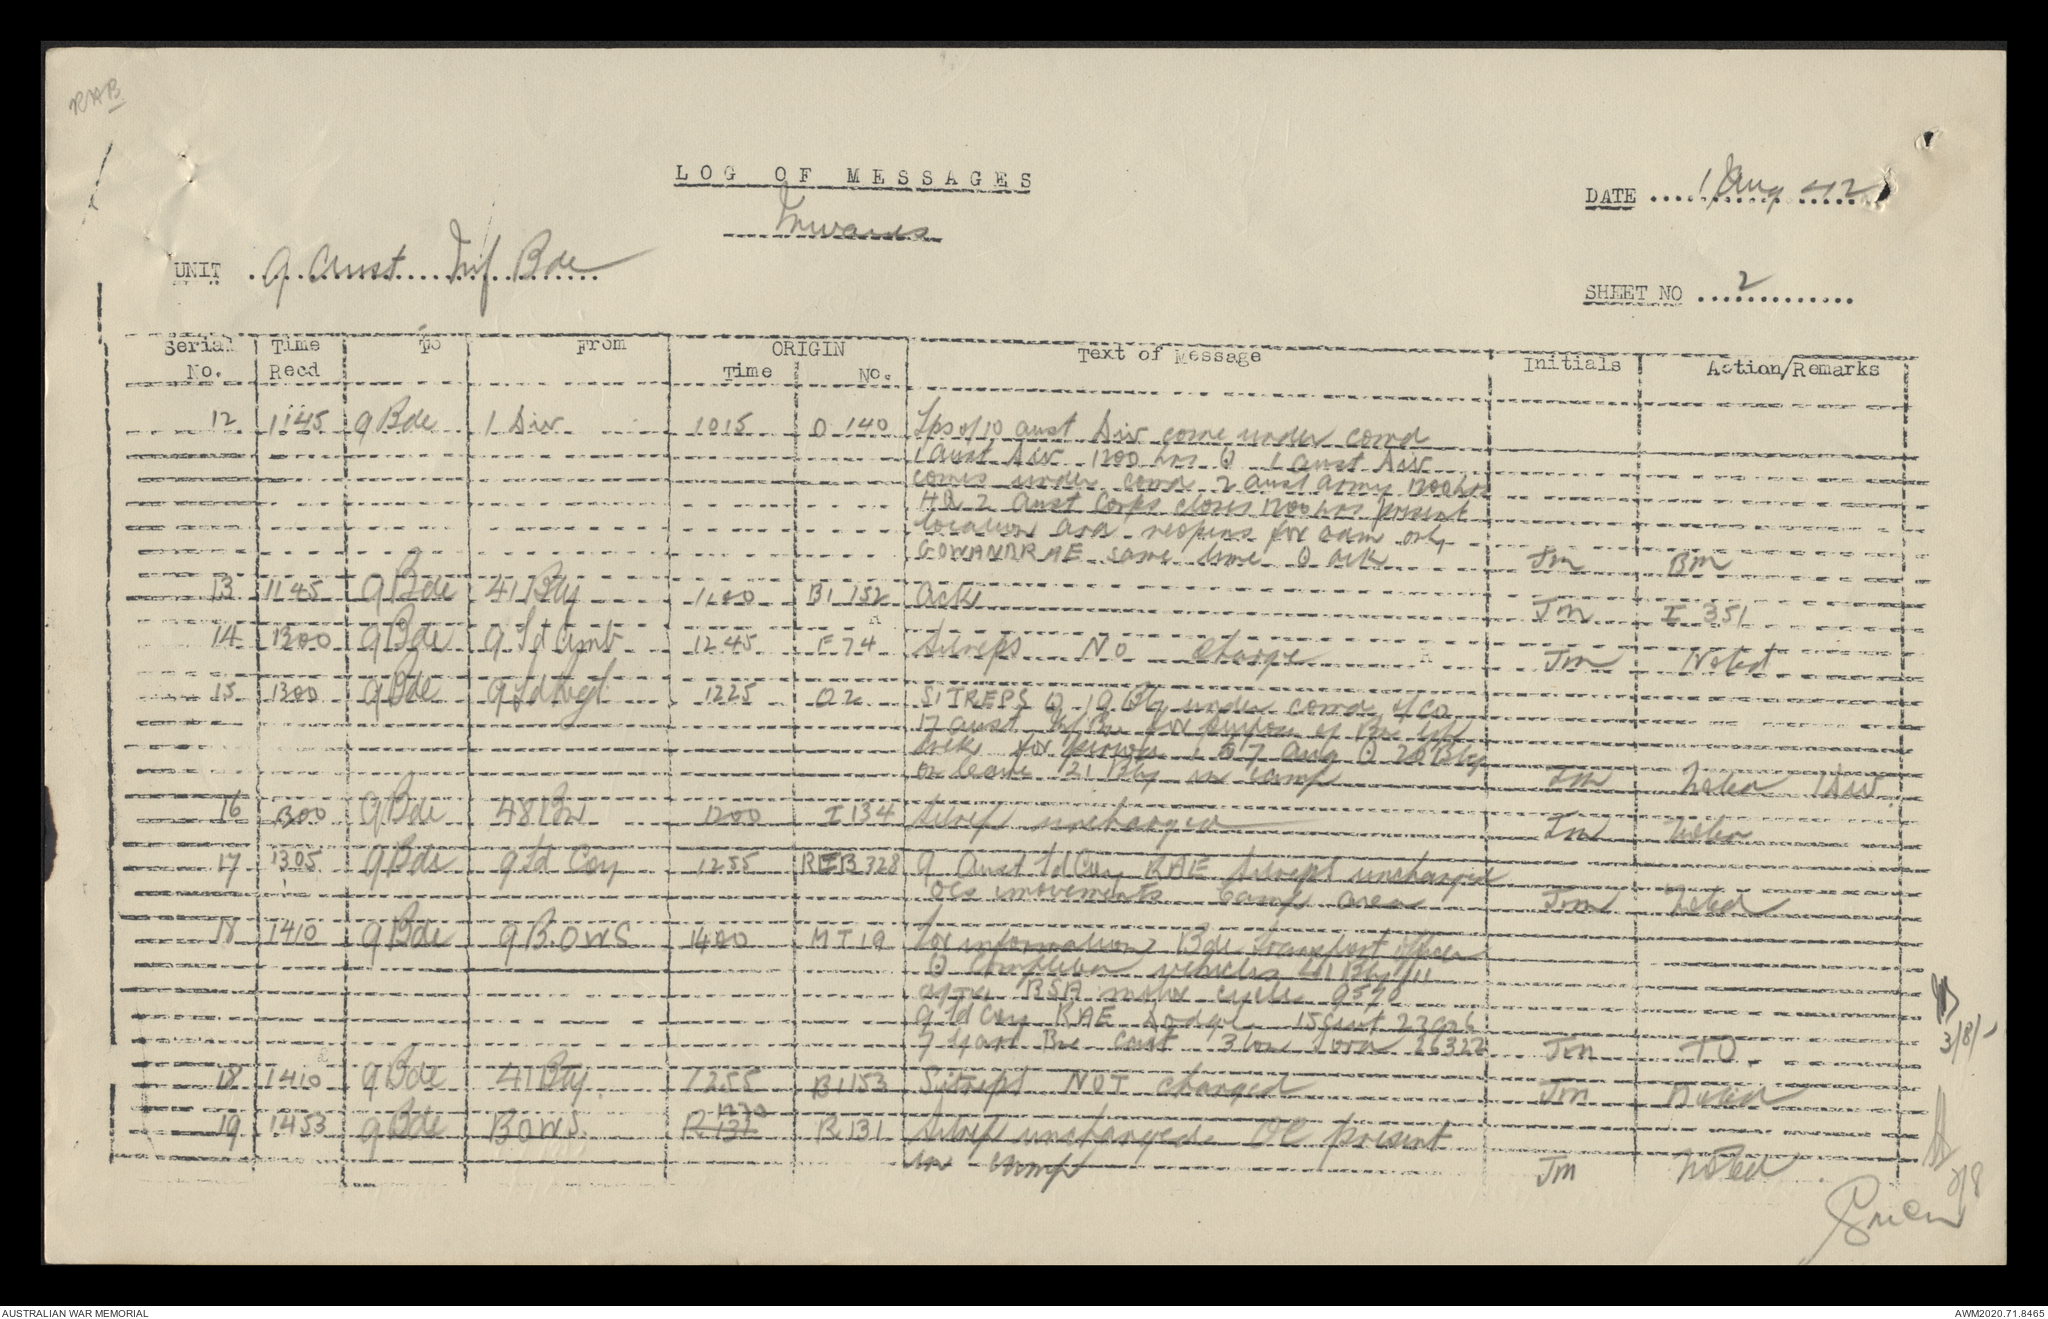 RAB
LOG OF MESSAGES
Inwards
DATE 1 Aug 42
UNIT 9 Aust Inf Bde
SHEET NO 2
Serial No. Time Recd To From ORIGIN Time No. Text of Message Initials Action/Remarks
12 1145 9 Bde 1 Div 1015 O 140 Tps of 10 Aust Div come under comd
1 Aust Div 1200 hrs ⊙ 1 Aust Div
comes under comd 2 Aust Army 1200 hrs
HQ 2 Aust Corps closes 1200 hrs present
location and reopens for adm only
GOWANBRAE same time ⊙ ack Jm Bm
13 1145 9 Bde 41 Bty 1100 B1 152 Ack Jm I 351
14 1300 9 Bde 9 Fd Amb 1245 F 74 Sitreps No change Jm Noted
15 1300 9 Bde 9 Fd Regt 1225 O 2 SITREPS ⊙ 19 Bty under comd of CO
17 Aust Inf Bn for purpose of Bn
trek for period 1 to 7 Aug ⊙ 20 Bty
on leave 121 Bty in camp Jm Noted 1 Div
16 1300 9 Bde 48 Bn 1200 I 134 Sitrep unchanged Jm Noted
17 1305 9 Bde 9 Fd Coy 1255 REB 328 9 Aust Fd Coy RAE Sitreps unchanged
OCs movements Camp area Jm Noted
18 1410 9 Bde 9 B.OWS 1400 MT 19 for information Bde transport officer
⊙ Completion vehicles 41 Bty
BSA motor cycle 9570
9 Fd Coy RAE Dodge 15 cwt
7 Gari Bn Cast 3 ton Ford 26322 Jm TO
18 1410 9 Bde 41 Bty 1255 B1 153 Sitreps NOT changed Jm Noted
19 1453 9 Bde BOWS R 131 R 131 Sitrep unchanged. OC present
in camp Jm Noted
3/8/-